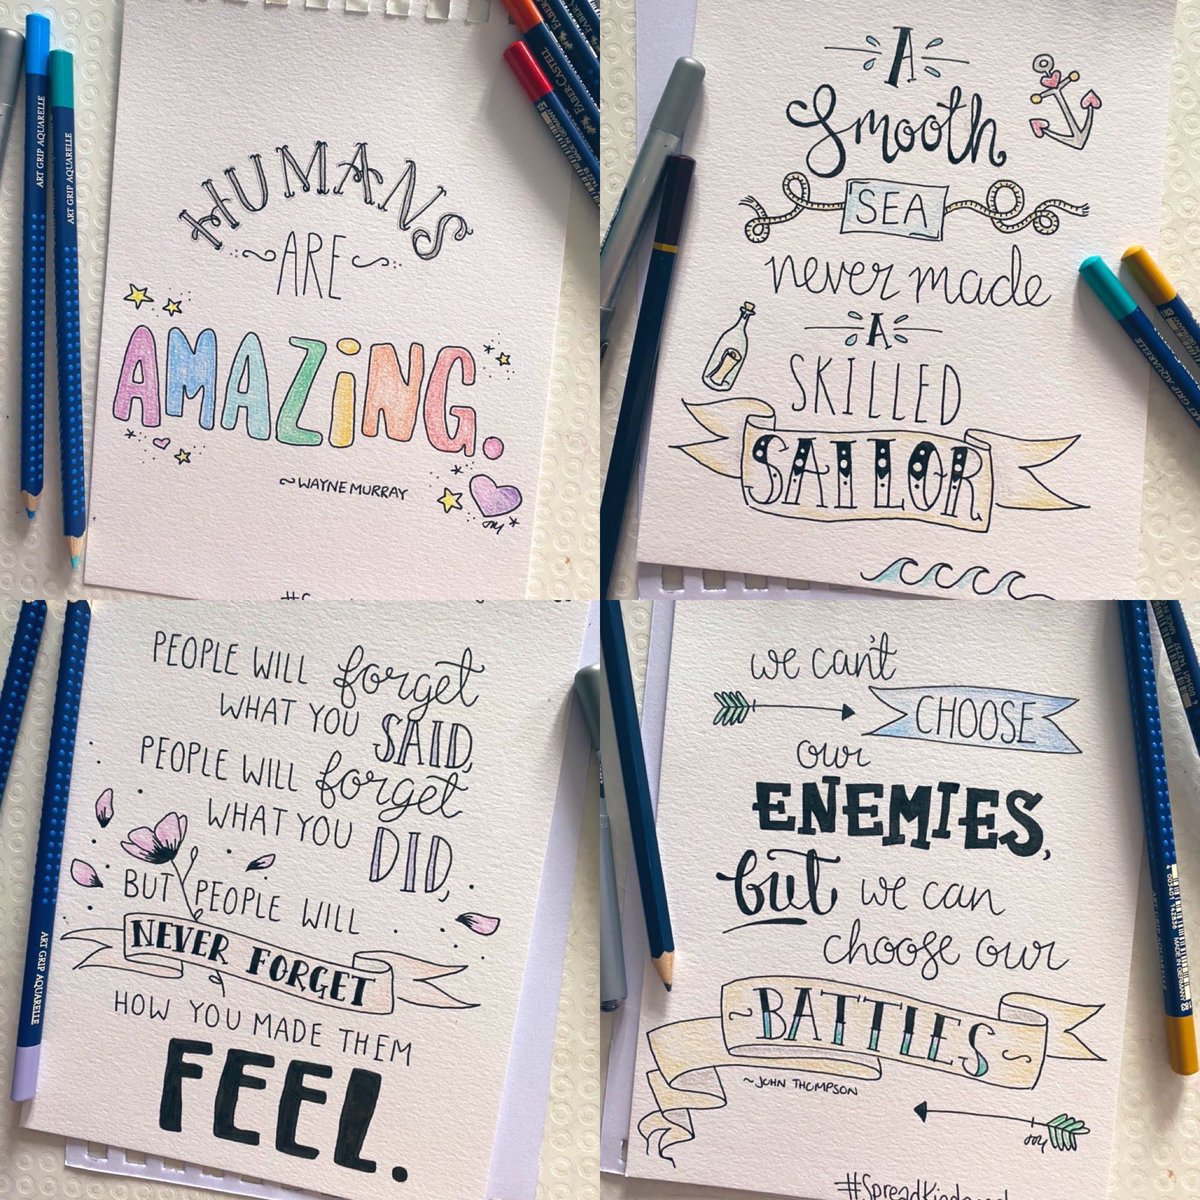 HUMANS
ARE
AMAZING.
~WAYNE MURRAY
ART GRIP AQUARELLE
ART GRIP AQUARELLE
FABER-CASTELL
FABER-CASTELL
A
Smooth
SEA
never made
A
SKILLED
SAILOR
ART GRIP AQUARELLE
PEOPLE WILL forget
WHAT YOU SAID,
PEOPLE WILL forget
WHAT YOU DID,
BUT PEOPLE WILL
NEVER FORGET
HOW YOU MADE THEM
FEEL.
ART GRIP AQUARELLE
we can't
CHOOSE
our
ENEMIES,
but we can
choose our
BATTLES
~JOHN THOMPSON
MADE IN GERMANY